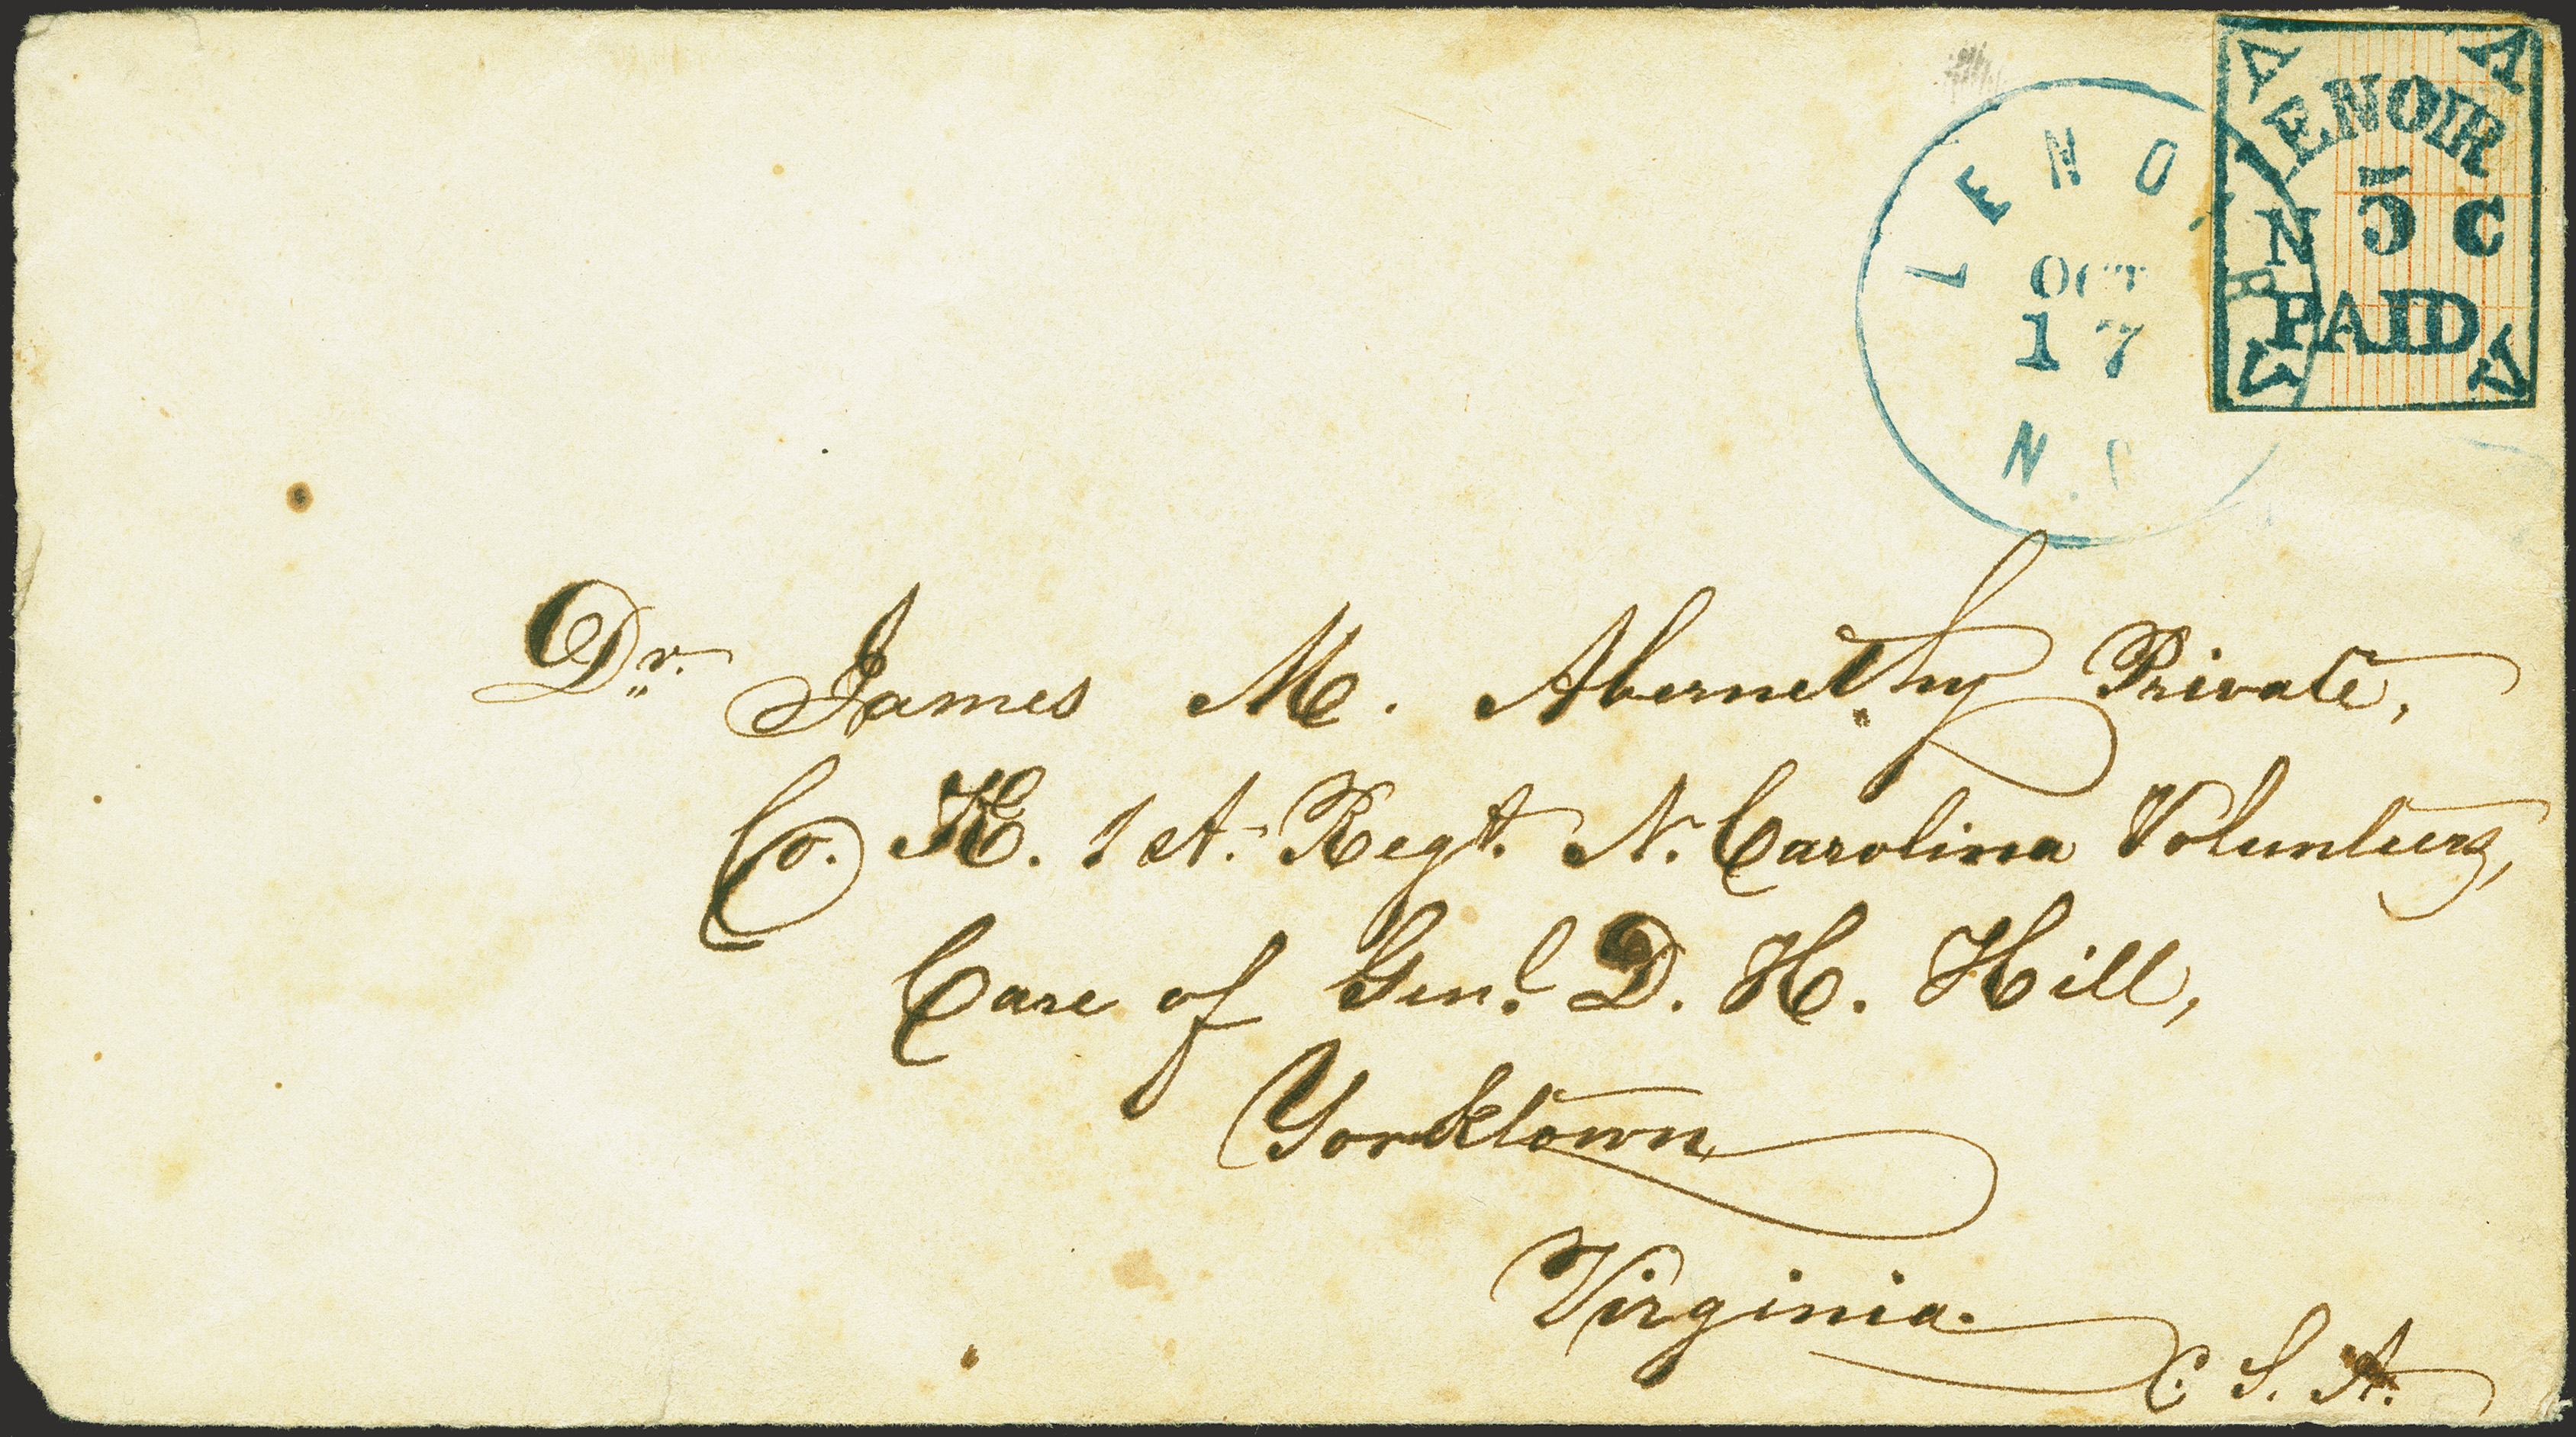 LENO
OCT
17
N.C
LENOIR
N 5 C
PAID
Dr. James M. Abernethy Private,
Co. K. 1st. Regt. N. Carolina Volunteers,
Care of Genl. D. H. Hill,
Yorktown
Virginia.
C. S. A.